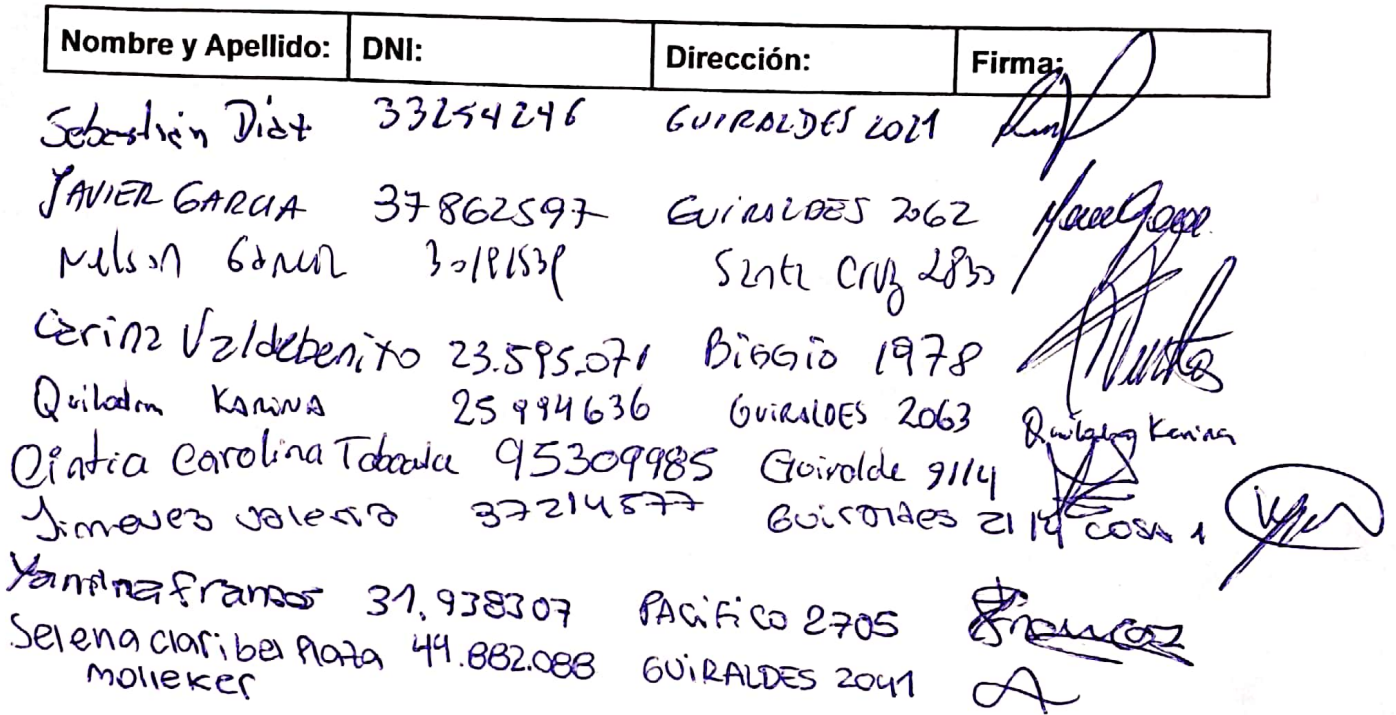 Nombre y Apellido: DNI: Dirección: Firma:
Sebastián Diaz 33254246 GUIRALDES 2021
JAVIER GARCIA 37862597 GUIRALDES 2062
Nelson Santa Cruz 2830
Carina Valdebenito 23.595.071 BIGGIO 1978
Quilodran KARINA 25994636 GUIRALDES 2063 Karina
Cintia Carolina Taboada 95309985 Guiralde 91/4
Jimenez Valeria 37214577 Guiraldes 2114 COSA 1
Yamina 31.938307 PACIFICO 2705
Selena claribel Plaza 44.882.088 GUIRALDES 2041
Molleker